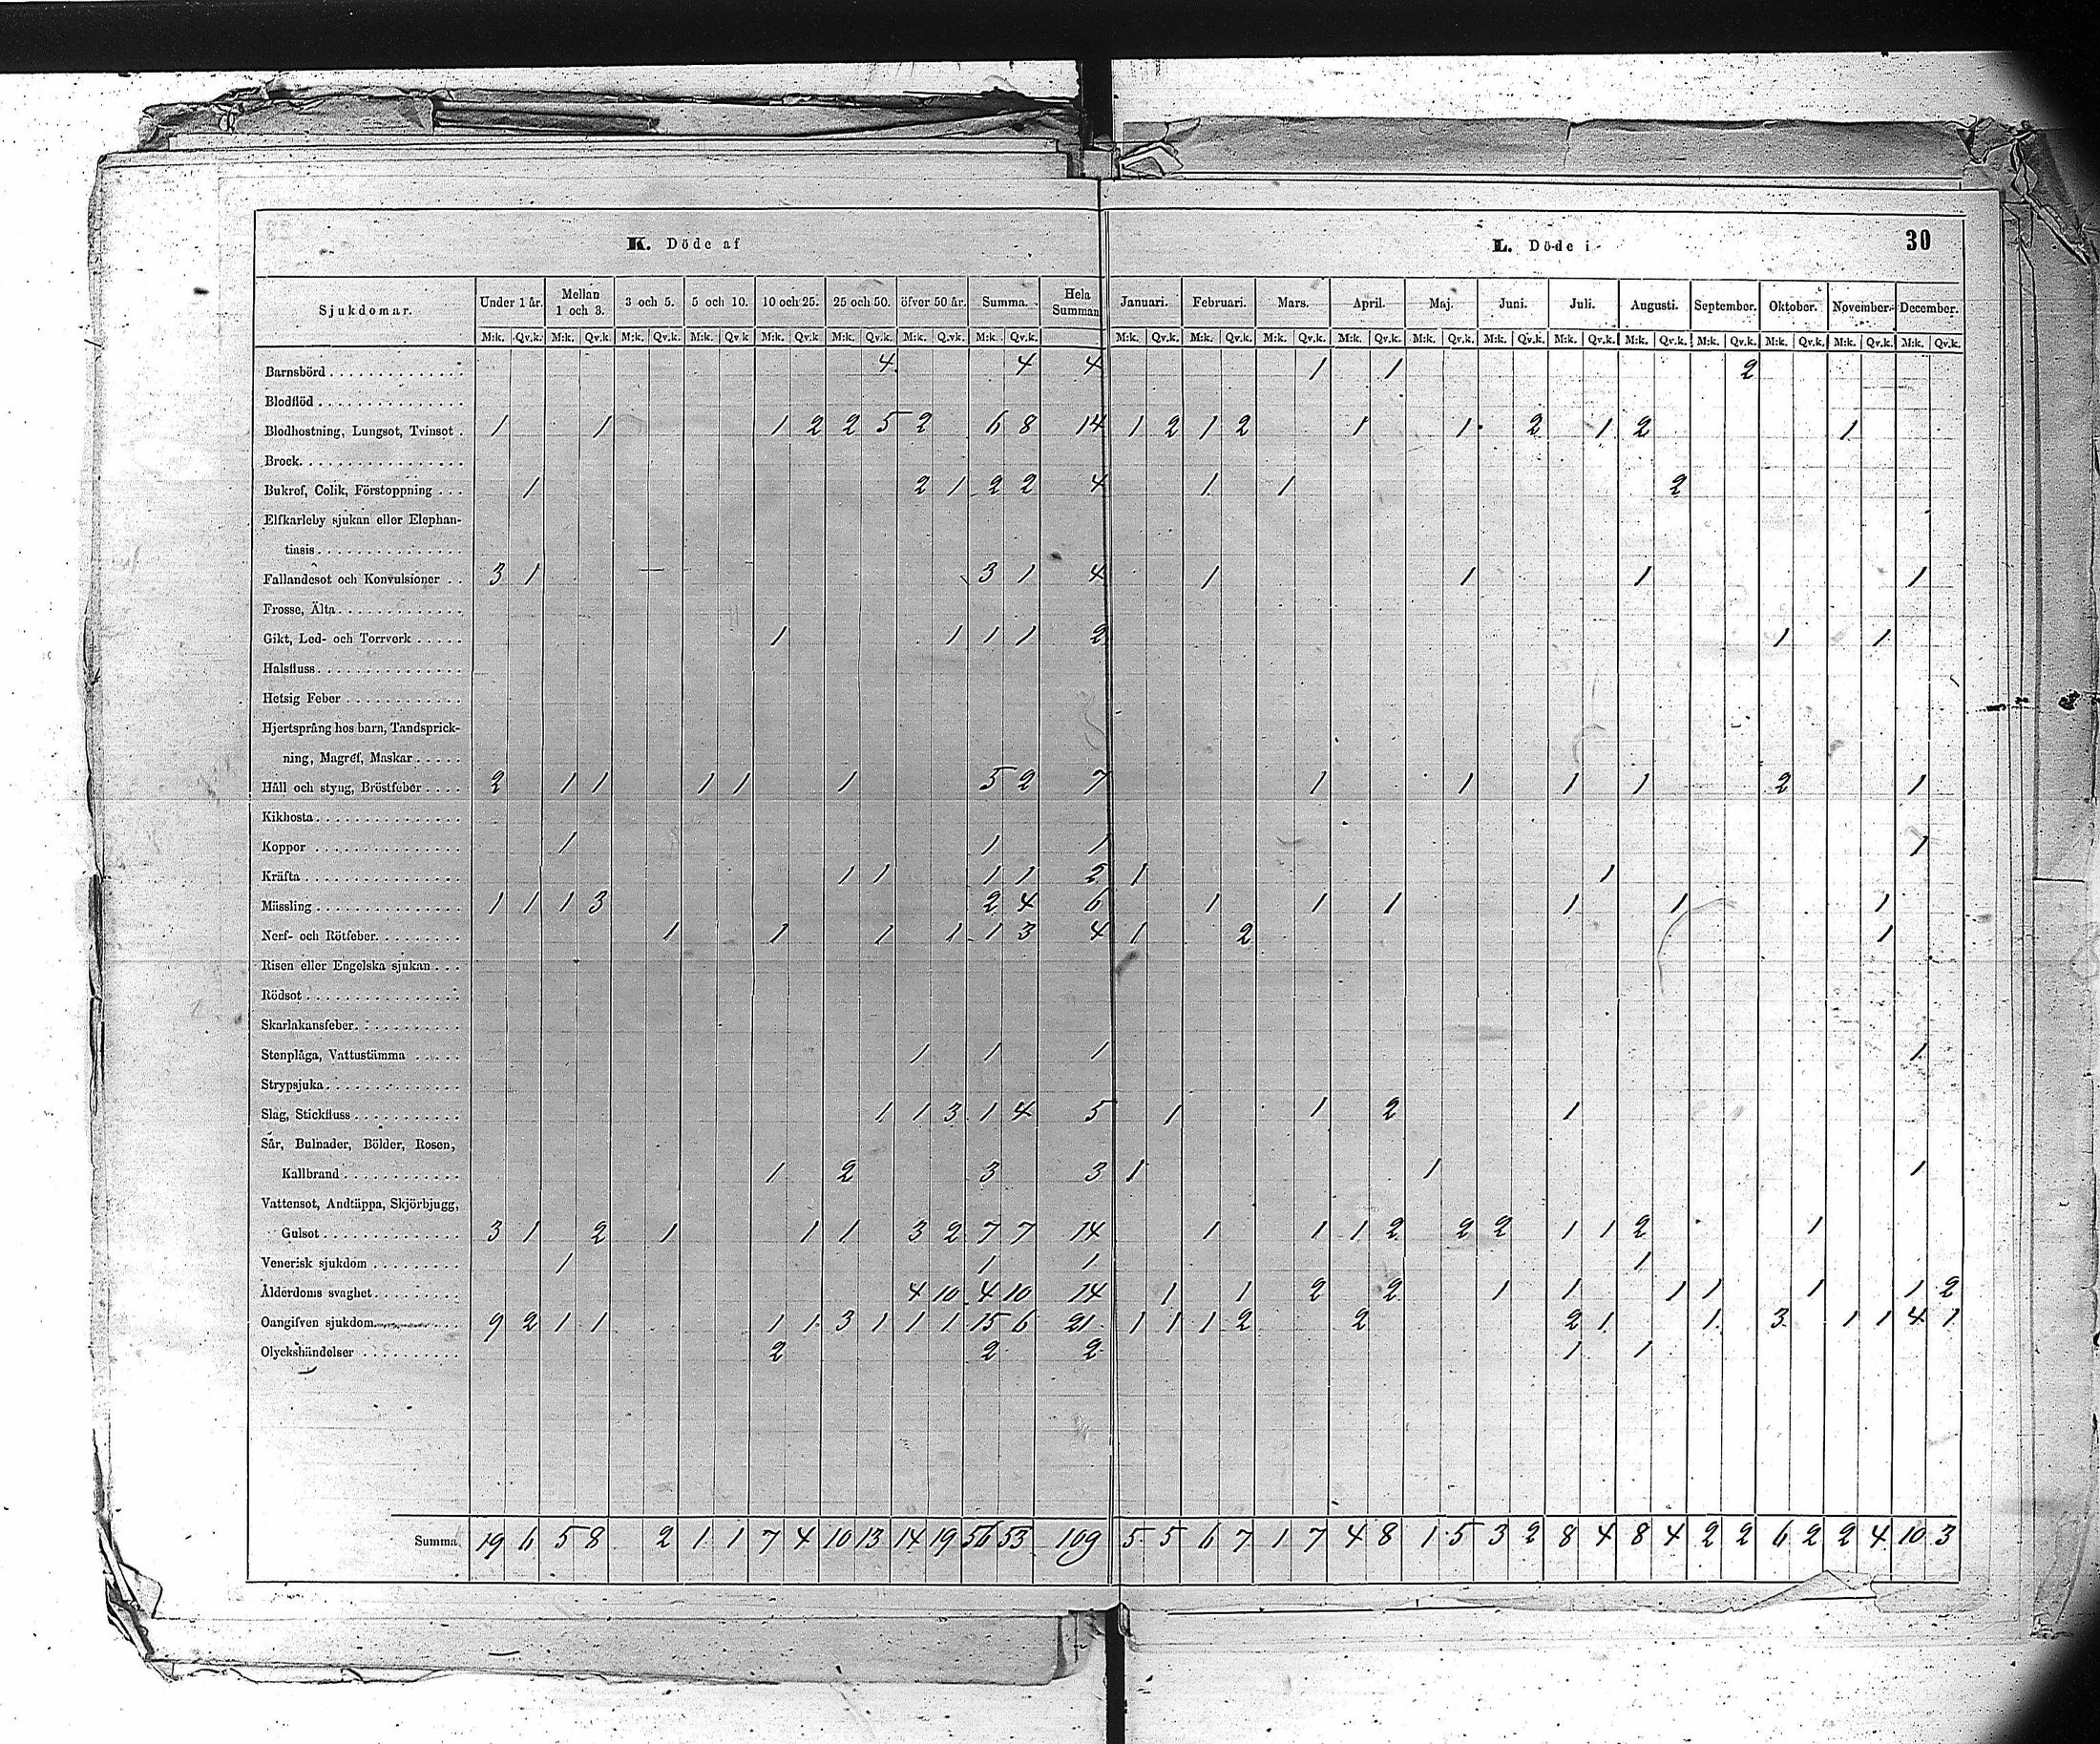 K. Döde af
L. Döde i
30
Sjukdomar. Under 1 år. Mellan 1 och 3. 3 och 5. 5 och 10. 10 och 25. 25 och 50. öfver 50 år. Summa. Hela Summan Januari. Februari. Mars. April. Maj. Juni. Juli. Augusti. September. Oktober. November. December.
M:k. Qv.k. M:k. Qv.k. M:k. Qv.k. M:k. Qv.k M:k. Qv.k M:k. Qv.k. M:k. Q.vk. M:k. Qv.k. M:k. Qv.k. M:k. Qv.k. M:k. Qv.k. M:k. Qv.k. M:k. Qv.k. M:k. Qv.k. M:k. Qv.k. M:k. Qv.k. M:k. Qv.k. M:k. Qv.k. M:k. Qv.k. M:k. Qv.k.
Barnsbörd 4 4 4 1 1 2
Blodflöd
Blodhostning, Lungsot, Tvinsot 1 1 1 2 2 5 2 6 8 14 1 2 1 2 1 1 2 1 2 1
Brock
Bukref, Colik, Förstoppning 1 2 1 2 2 4 1 1 2
Elfkarleby sjukan eller Elephan-
tiasis
Fallandesot och Konvulsioner 3 1 3 1 4 1 1 1 1
Frosse, Älta
Gikt, Led- och Torrverk 1 1 1 1 2 1 1
Halsfluss
Hetsig Feber
Hjertsprång hos barn, Tandsprick-
ning, Magref, Maskar
Håll och styng, Bröstfeber 2 1 1 1 1 1 5 2 7 1 1 1 1 2 1
Kikhosta
Koppor 1 1 1 1
Kräfta 1 1 1 1 2 1 1
Mässling 1 1 1 3 2 4 6 1 1 1 1 1 1
Nerf- och Rötfeber 1 1 1 1 1 3 4 1 2 1
Risen eller Engelska sjukan
Rödsot
Skarlakansfeber
Stenplåga, Vattustämma 1 1 1 1
Strypsjuka
Slag, Stickfluss 1 1 3 1 4 5 1 1 2 1
Sår, Bulnader, Bölder, Rosen,
Kallbrand 1 2 3 3 1 1 1
Vattensot, Andtäppa, Skjörbjugg,
Gulsot 3 1 2 1 1 1 3 2 7 7 14 1 1 1 2 2 2 1 1 2 1
Venerisk sjukdom 1 1 1 1
Ålderdoms svaghet 4 10 4 10 14 1 1 2 2 1 1 1 1 1 1 2
Oangifven sjukdom 9 2 1 1 1 1 3 1 1 1 15 6 21 1 1 1 2 2 2 1 1 3 1 1 4 1
Olyckshändelser 2 2 2 1 1
Summa 19 6 5 8 2 1 1 7 4 10 13 14 19 56 53 109 5 5 6 7 1 7 4 8 1 5 3 2 8 4 8 4 2 2 6 2 2 4 10 3